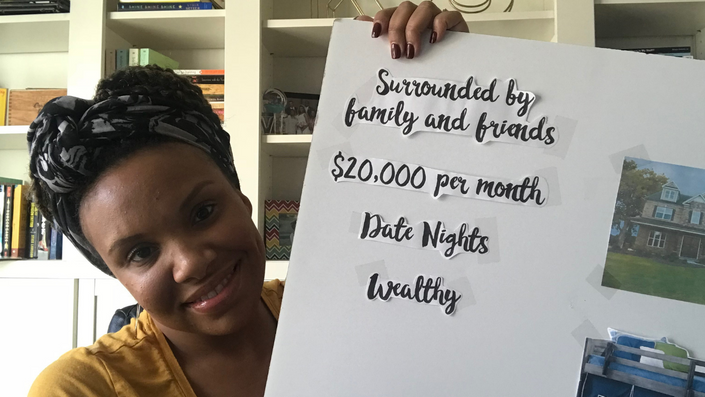 Surrounded by
family and friends
$20,000 per month
Date Nights
Wealthy